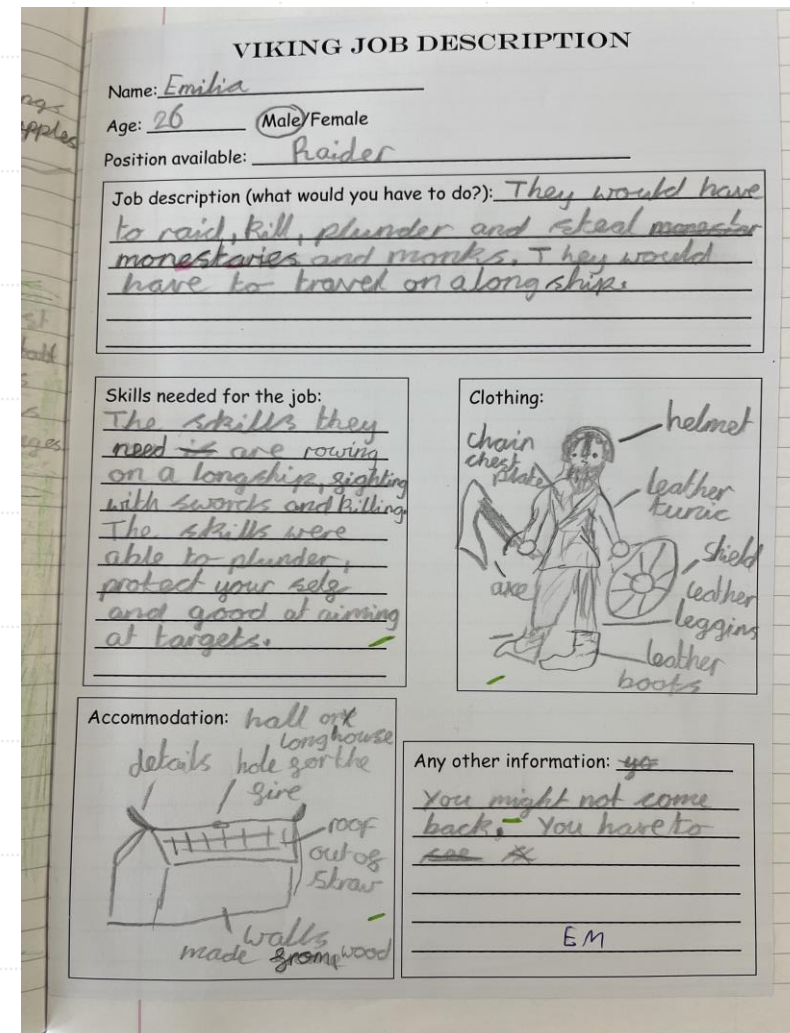 ngs
apples
VIKING JOB DESCRIPTION
Name: Emilia
Age: 26 Male/Female
Position available: Raider
Job description (what would you have to do?): They would have
to raid, kill, plunder and steal monestar
monestaries and monks. They would
have to travel on a long ship.
Skills needed for the job:
The skills they
need is are rowing
on a longship, fighting
with swords and killing.
The skills were
able to plunder,
protect your self
and good at aiming
at targets.
Clothing:
helmet
chain
chest plate
leather
tunic
axe
shield
leather
leggins
leather
boots
Accommodation: hall or
longhouse
details
hole for the
fire
roof
out of
straw
walls
made from wood
Any other information: yo
You might not come
back. You have to
see
EM